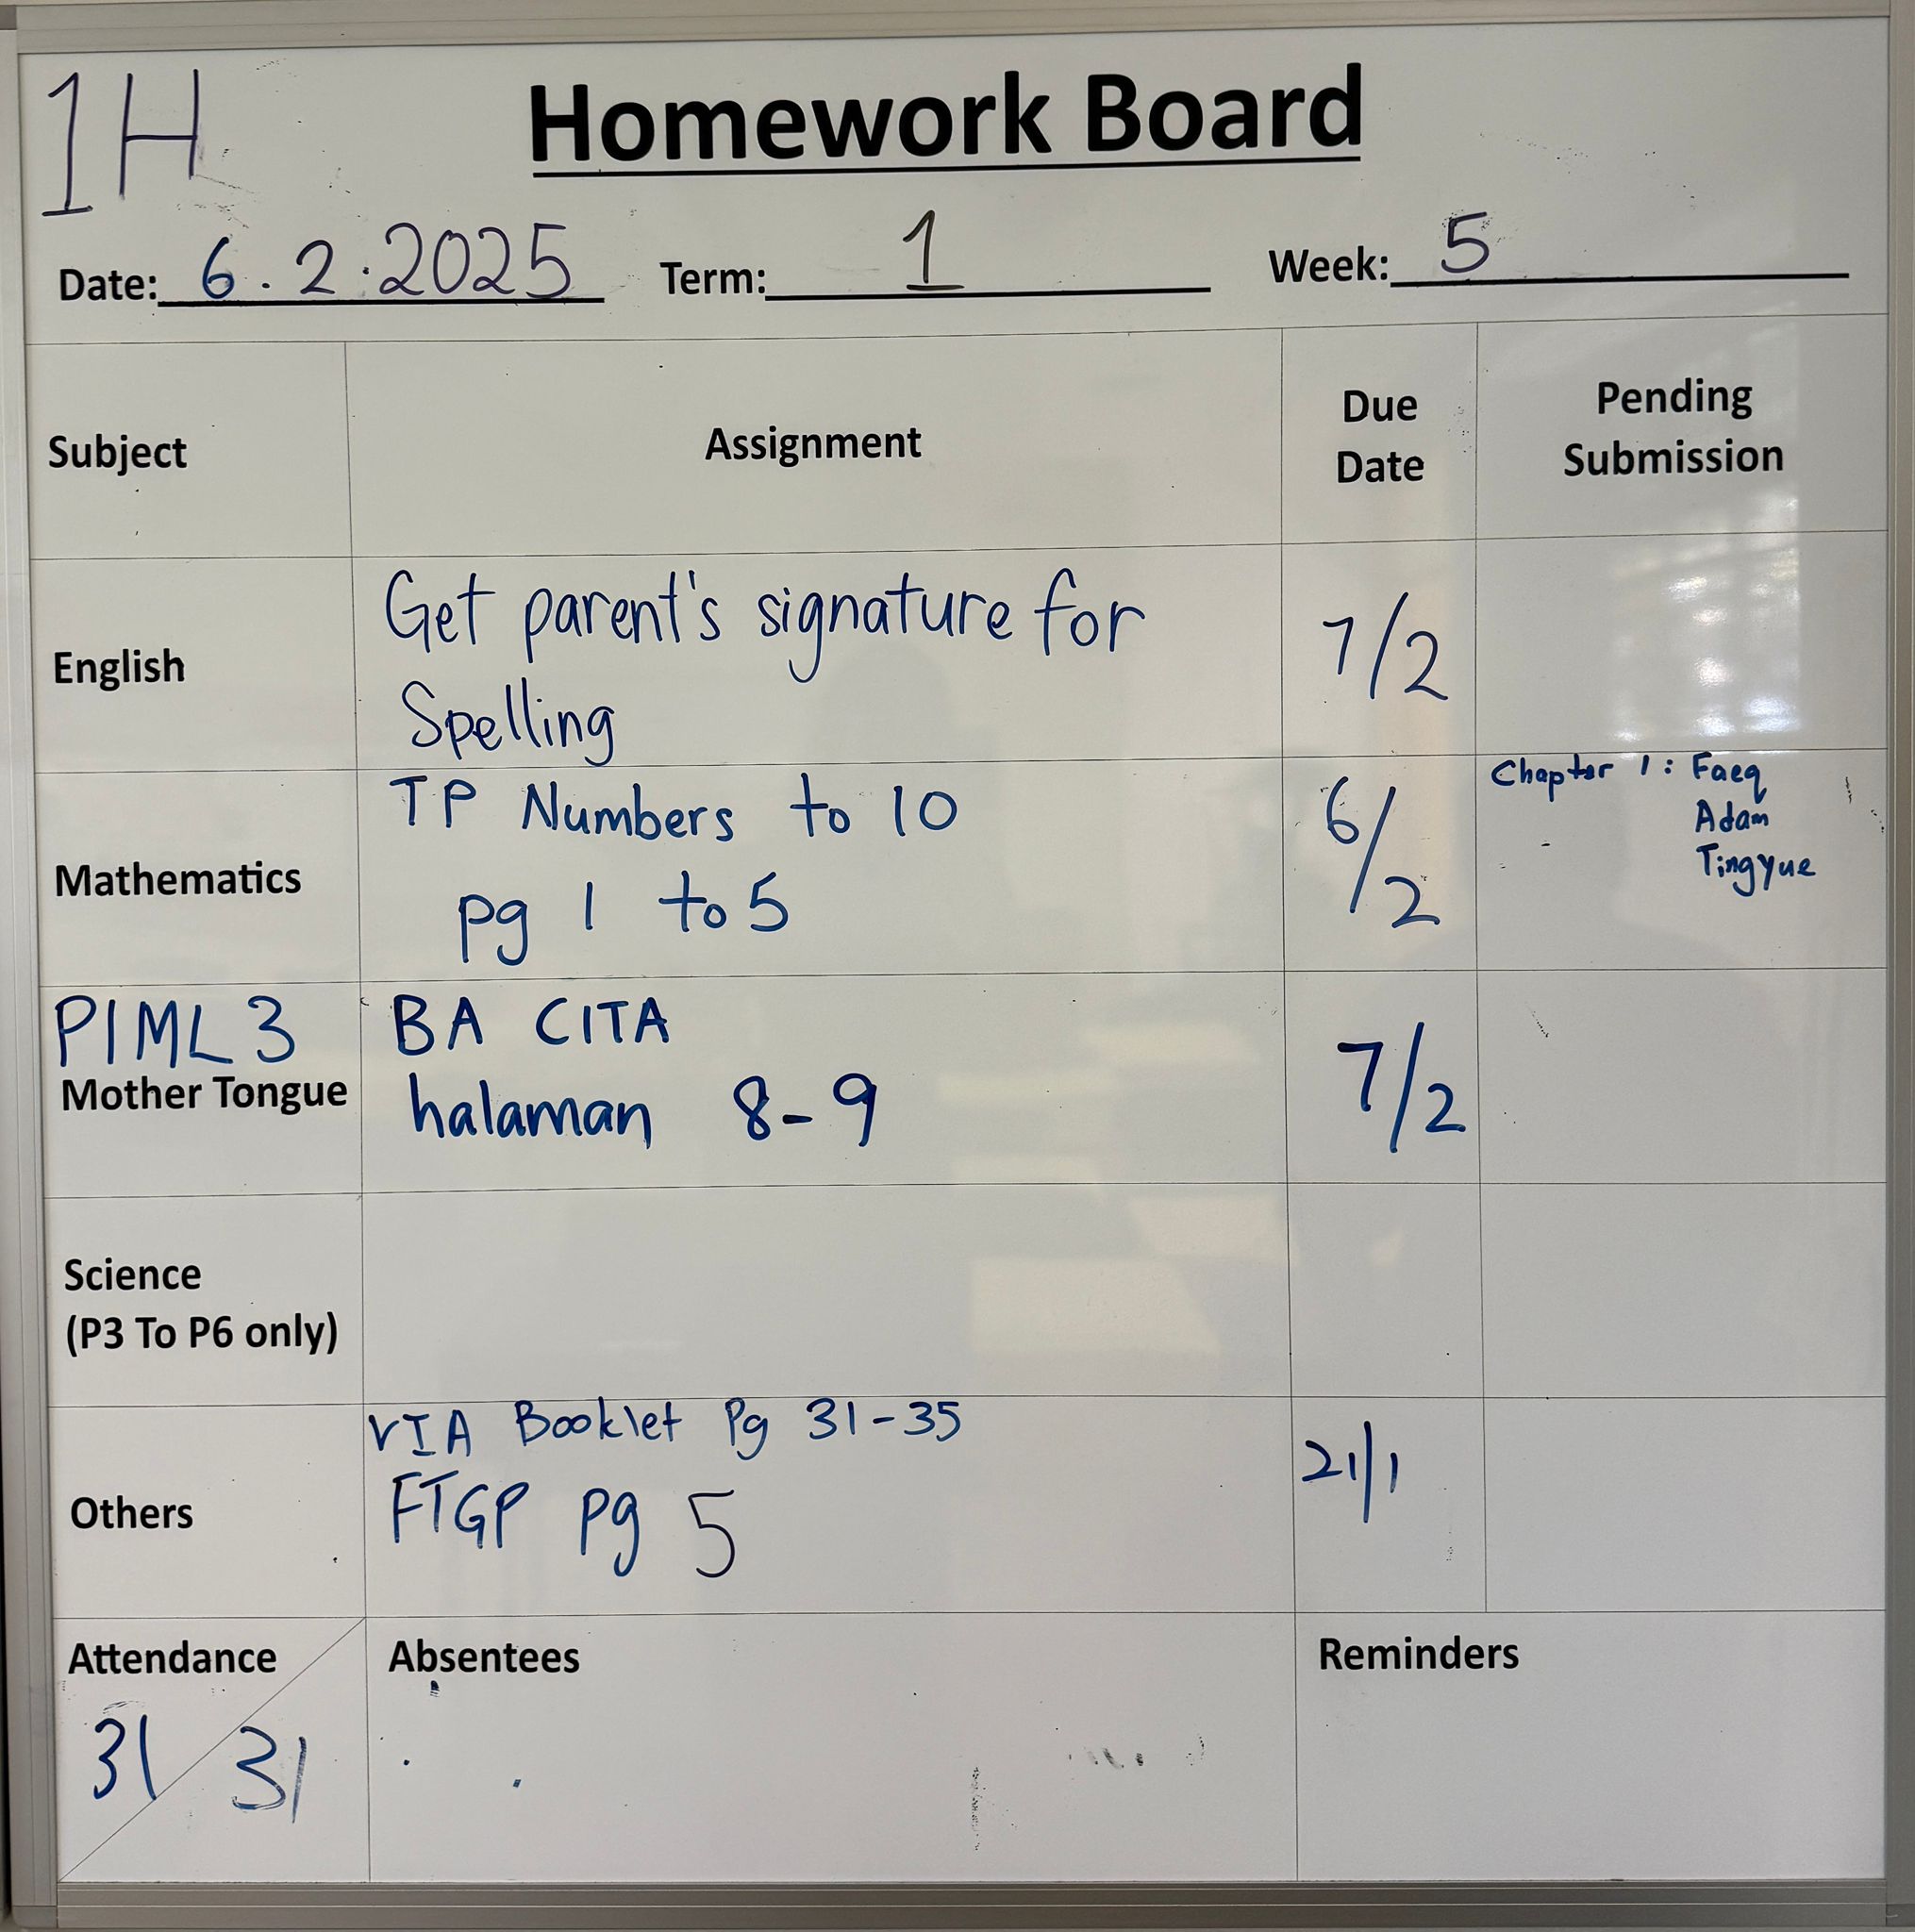 1H
Homework Board
Date: 6.2.2025 Term: 1 Week: 5
Subject Assignment Due Date Pending Submission
English Get parent's signature for Spelling 7/2
Mathematics TP Numbers to 10 pg 1 to 5 6/2 Chapter 1: Faeq
Adam
Tingyue
P1ML3
Mother Tongue BA CITA halaman 8-9 7/2
Science
(P3 To P6 only)
Others VIA Booklet Pg 31-35 21/1
FTGP pg 5
Attendance Absentees Reminders
31/31